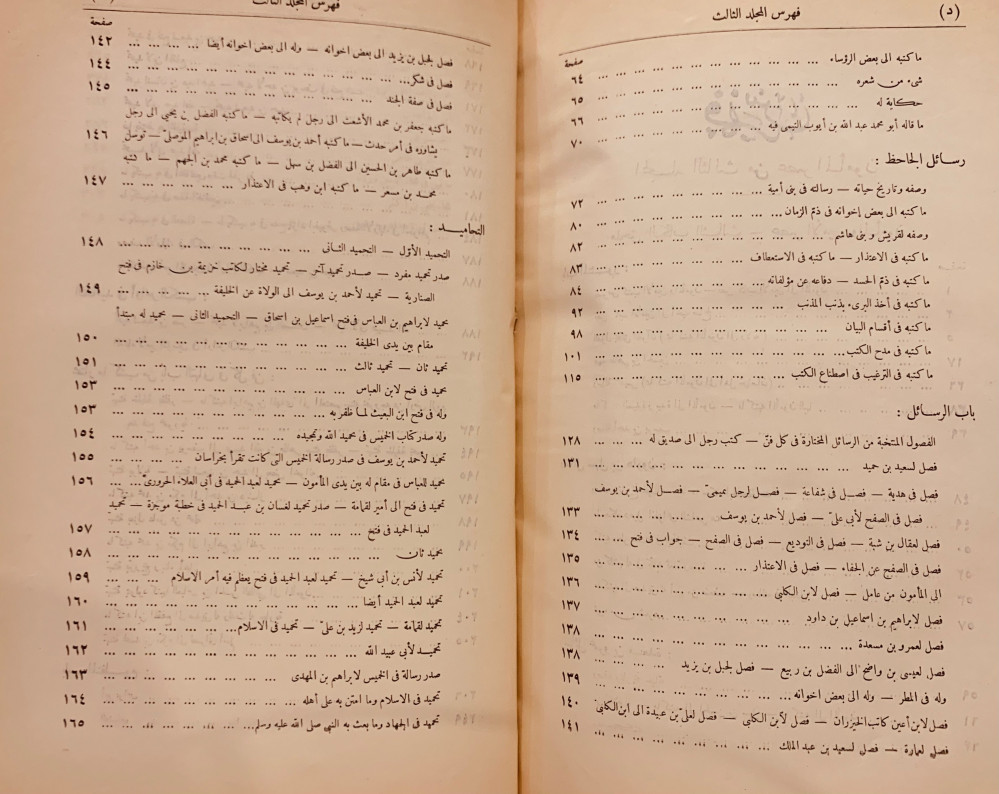 (د) فهرس المجلد الثالث
صفحة
ما كتبه الى بعض الرؤساء ... ... ... ٦٤
شىء من شعره ... ... ... ٦٥
حكاية له ... ... ... ٦٦
ما قاله أبو محمد عبد الله بن أيوب التيمى فيه ... ... ... ٧٠
رسائل الجاحظ :
وصفه وتاريخ حياته — رسالته فى بنى أمية ... ... ... ٧٢
ما كتبه الى بعض إخوانه فى ذم الزمان ... ... ... ٨٠
وصفه لقريش وبنى هاشم ... ... ... ٨٢
ما كتبه فى الاعتذار — ما كتبه فى الاستعطاف ... ... ... ٨٣
ما كتبه فى ذم الحسد — دفاعه عن مؤلفاته ... ... ... ٨٤
ما كتبه فى أخذ البرىء بذنب المذنب ... ... ... ٩٢
ما كتبه فى أقسام البيان ... ... ... ٩٨
ما كتبه فى مدح الكتب ... ... ... ١٠١
ما كتبه فى الترغيب فى اصطناع الكتب ... ... ... ١١٥
باب الرسائل :
الفصول المنتخبة من الرسائل المختارة فى كل فنّ — كتب رجل الى صديق له ... ... ١٢٨
فصل لسعيد بن حميد ... ... ... ١٣١
فصل فى هدية — فصل فى شفاعة — فصل لرجل تميمىّ — فصل لأحمد بن يوسف
فصل فى الصفح لأبى علىّ — فصل لأحمد بن يوسف ... ... ... ١٣٣
فصل لعقال بن شبة — فصل فى التوديع — فصل فى الصفح — جواب فى فتح ... ... ١٣٤
فصل فى الصفح عن الجفاء — فصل فى الاعتذار ... ... ... ١٣٥
الى المأمون من عامل — فصل لابن الكلبى ... ... ... ١٣٦
فصل لابراهيم بن اسماعيل بن داود ... ... ... ١٣٧
فصل لعمرو بن مسعدة ... ... ... ١٣٨
فصل لعيسى بن واضح الى الفضل بن ربيع — فصل لجبل بن يزيد ... ... ... ١٣٨
وله فى المطر — وله الى بعض اخوانه ... ... ... ١٣٩
فصل لابن أعين كاتب الخيزران — فصل لابن الكلبى — فصل لعلىّ بن عبيدة الى ابن الكلبى ١٤٠
فصل لعمارة — فصل لسعيد بن عبد الملك ... ... ... ١٤١
فهرس المجلد الثالث
صفحة
فصل لجبل بن يزيد الى بعض اخوانه — وله الى بعض اخوانه أيضا ... ... ... ١٤٢
فصل فى شكر ... ... ... ١٤٤
فصل فى صفة الجند ... ... ... ١٤٥
ما كتبه جعفر بن محمد الأشعث الى رجل لم يكاتبه — ما كتبه الفضل بن يحيى الى رجل
يشاوره فى أمر حدث — ما كتبه أحمد بن يوسف الى اسحاق بن ابراهيم الموصلىّ — توسل ١٤٦
ما كتبه طاهر بن الحسين الى الفضل بن سهل — ما كتبه محمد بن الجهم — ما كتبه
محمد بن مسعر — ما كتبه ابن وهب فى الاعتذار ... ... ... ١٤٧
التحاميد :
التحميد الأوّل — التحميد الثانى ... ... ... ١٤٨
صدر تحميد مفرد — صدر تحميد آخر — تحميد مختار لكاتب خزيمة بن خازم فى فتح
الصنارية — تحميد لأحمد بن يوسف الى الولاة عن الخليفة ... ... ... ١٤٩
تحميد لابراهيم بن العباس فى فتح اسماعيل بن اسحاق — التحميد الثانى — تحميد له مبتدأ
مقام بين يدى الخليفة ... ... ... ١٥٠
تحميد ثان — تحميد ثالث ... ... ... ١٥١
تحميد فى فتح لابن العباس ... ... ... ١٥٣
وله فى فتح ابن البعيث لما ظفر به ... ... ... ١٥٣
وله صدر كتاب الخميس فى تحميد الله وتمجيده ... ... ... ١٥٤
تحميد لأحمد بن يوسف فى صدر رسالة الخميس التى كانت تقرأ بخراسان ... ... ... ١٥٥
تحميد للعباس فى مقام له بين يدى المأمون — تحميد لعبد الحميد فى أبى العلاء الحرورىّ ... ... ١٥٦
تحميد فى فتح الى أمير لقمامة — صدر تحميد لغسان بن عبد الحميد فى خطبة موجزة — تحميد
لعبد الحميد فى فتح ... ... ... ١٥٧
تحميد ثان ... ... ... ١٥٨
تحميد لأنس بن أبى شيخ — تحميد لعبد الحميد فى فتح يعظم فيه أمر الاسلام ... ... ١٥٩
تحميد لعبد الحميد أيضا ... ... ... ١٦٠
تحميد لقمامة — تحميد لزيد بن علىّ — تحميد فى الاسلام ... ... ... ١٦١
تحميد لأبى عبيد الله ... ... ... ١٦٢
صدر رسالة فى الخميس لابراهيم بن المهدى ... ... ... ١٦٣
تحميد فى الاسلام وما امتن به على أهله ... ... ... ١٦٤
تحميد فى الجهاد وما بعث به النبى صلى الله عليه وسلم ... ... ... ١٦٥